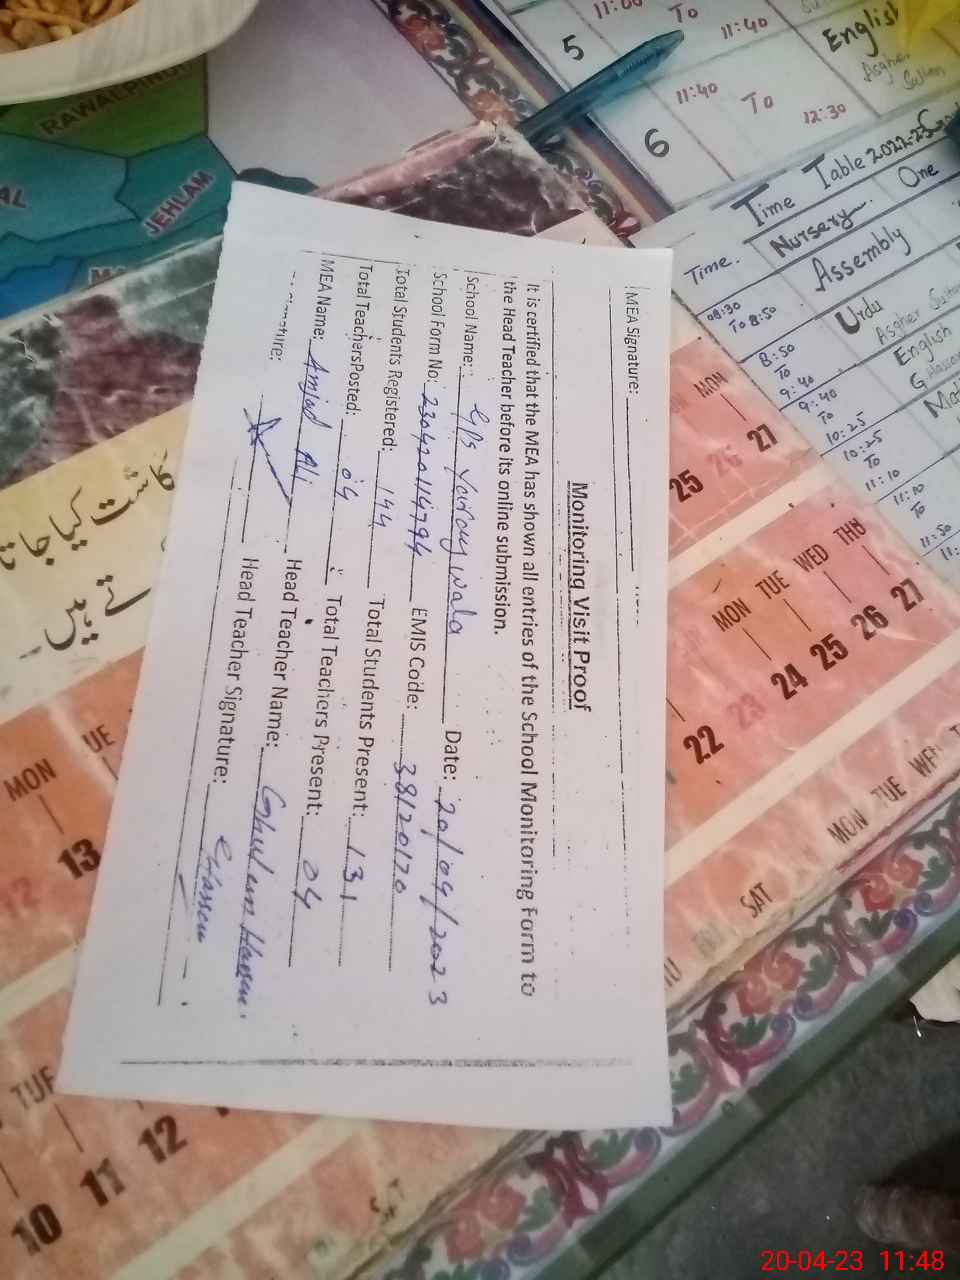 MEA Signature:
Monitoring Visit Proof
It is certified that the MEA has shown all entries of the School Monitoring Form to
the Head Teacher before its online submission.
School Name: GPS Date: 20/04/2023
School Form No: 230420114794 EMIS Code: 38120170
Total Students Registered: 144 Total Students Present: 131
Total TeachersPosted: 04 Total Teachers Present: 04
MEA Name: Amjad Ali Head Teacher Name: Ghulam Hassan
Head Teacher Signature: G Hassan
RAWALPINDI
JEHLAM
5
11:00
To
11:40
English
Asgher
Sultan
6
11:40
To
12:30
Time Table 2022-23
Time. Nursery One
Assembly
08:30
To 8:50
Urdu
Asgher Sultan
8:50
To
9:40
English
G Hassan
9:40
To
10:25
10:25
To
11:10
11:10
To
11:50
MON
25 26 27
MON TUE WED THU
22 23 24 25 26 27
MON TUE WED
SAT
کاشت کیا جاتا
ہیں
MON TUE
12 13
TUE
10 11 12
SAT
20-04-23 11:48